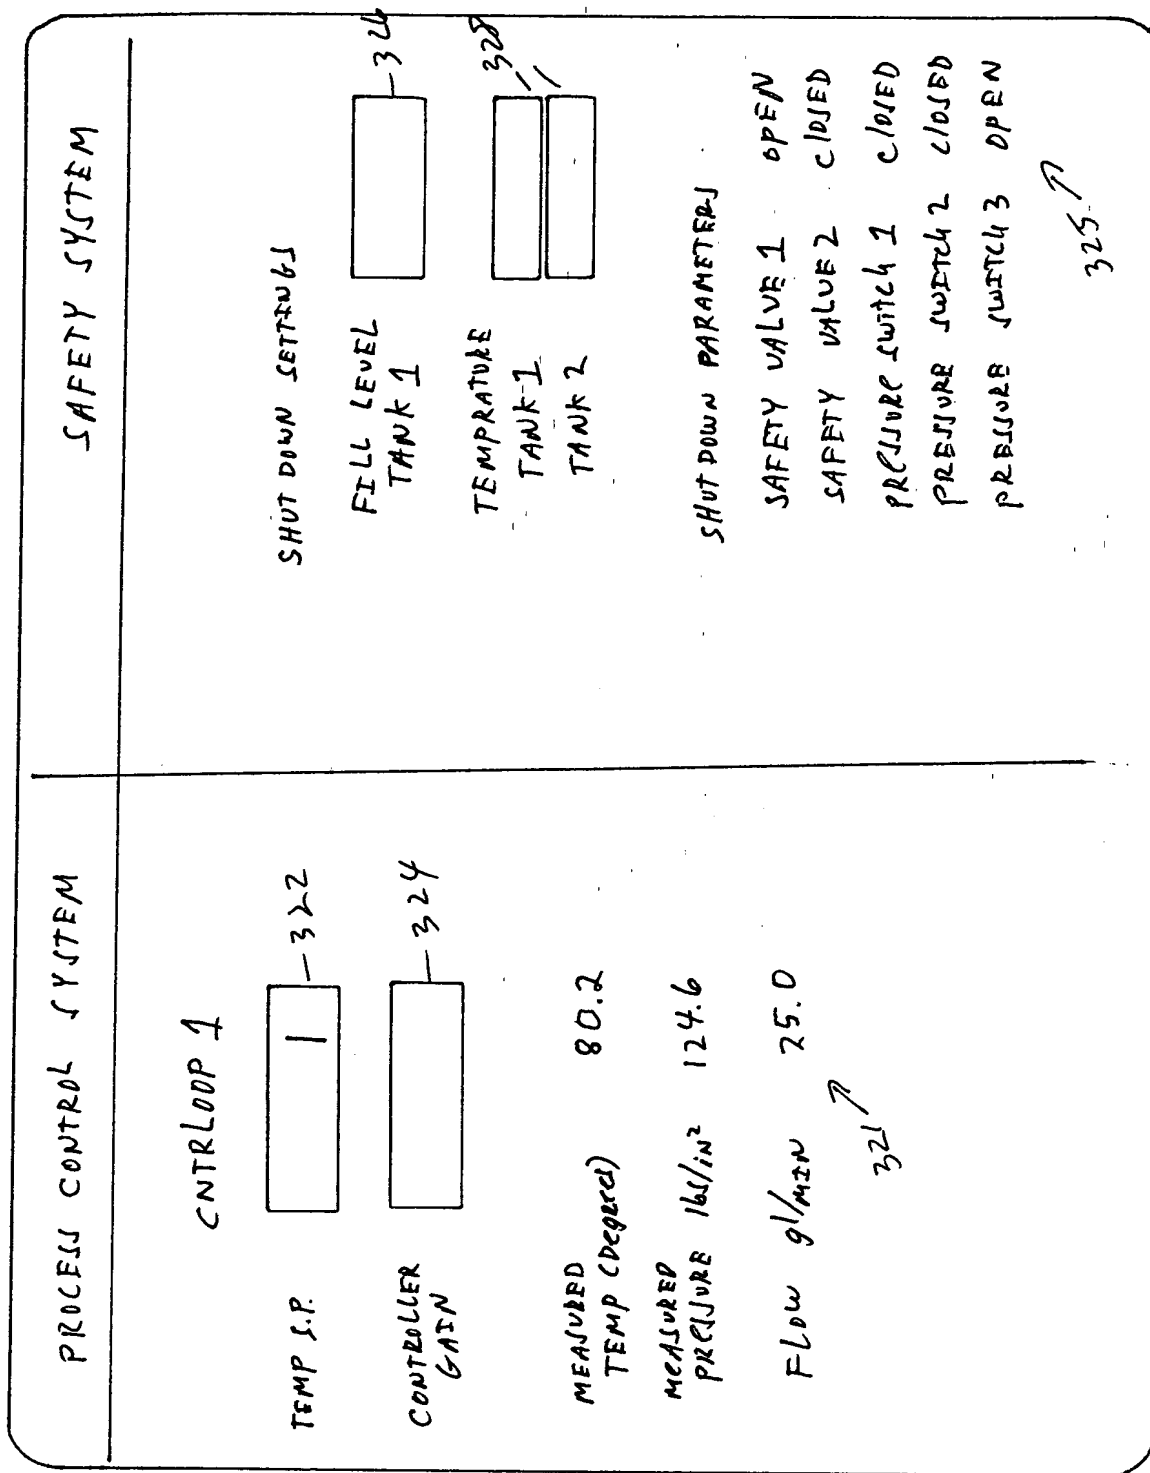 PROCESS CONTROL SYSTEM
CNTRLOOP 1
TEMP S.P.
322
CONTROLLER
GAIN
324
MEASURED
TEMP (Degrees) 80.2
MEASURED
PRESSURE lbs/in² 124.6
FLOW gl/MIN 25.0
321
SAFETY SYSTEM
SHUT DOWN SETTINGS
FILL LEVEL
TANK 1
326
TEMPRATURE
TANK 1
TANK 2
328
SHUT DOWN PARAMETERS
SAFETY VALUE 1 OPEN
SAFETY VALUE 2 CLOSED
PRESSURE SWITCH 1 CLOSED
PRESSURE SWITCH 2 CLOSED
PRESSURE SWITCH 3 OPEN
325